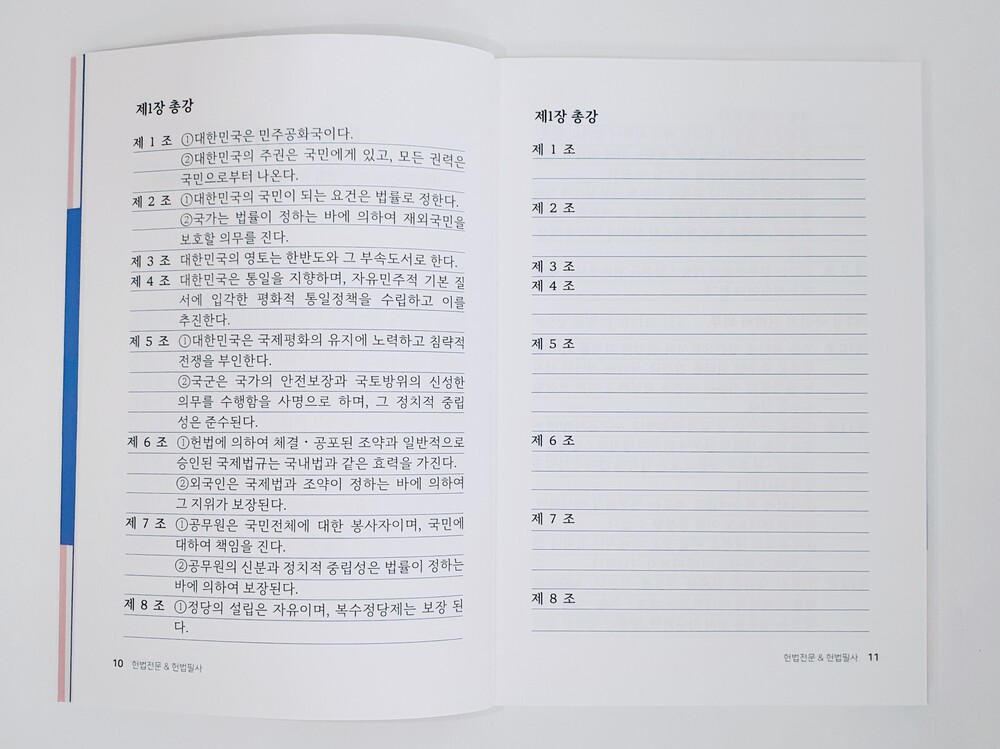 제1장 총강
제 1 조 ①대한민국은 민주공화국이다.
②대한민국의 주권은 국민에게 있고, 모든 권력은
국민으로부터 나온다.
제 2 조 ①대한민국의 국민이 되는 요건은 법률로 정한다.
②국가는 법률이 정하는 바에 의하여 재외국민을
보호할 의무를 진다.
제 3 조 대한민국의 영토는 한반도와 그 부속도서로 한다.
제 4 조 대한민국은 통일을 지향하며, 자유민주적 기본 질
서에 입각한 평화적 통일정책을 수립하고 이를
추진한다.
제 5 조 ①대한민국은 국제평화의 유지에 노력하고 침략적
전쟁을 부인한다.
②국군은 국가의 안전보장과 국토방위의 신성한
의무를 수행함을 사명으로 하며, 그 정치적 중립
성은 준수된다.
제 6 조 ①헌법에 의하여 체결・공포된 조약과 일반적으로
승인된 국제법규는 국내법과 같은 효력을 가진다.
②외국인은 국제법과 조약이 정하는 바에 의하여
그 지위가 보장된다.
제 7 조 ①공무원은 국민전체에 대한 봉사자이며, 국민에
대하여 책임을 진다.
②공무원의 신분과 정치적 중립성은 법률이 정하는
바에 의하여 보장된다.
제 8 조 ①정당의 설립은 자유이며, 복수정당제는 보장 된
다.
10 헌법전문 & 헌법필사
제1장 총강
제 1 조
제 2 조
제 3 조
제 4 조
제 5 조
제 6 조
제 7 조
제 8 조
헌법전문 & 헌법필사 11